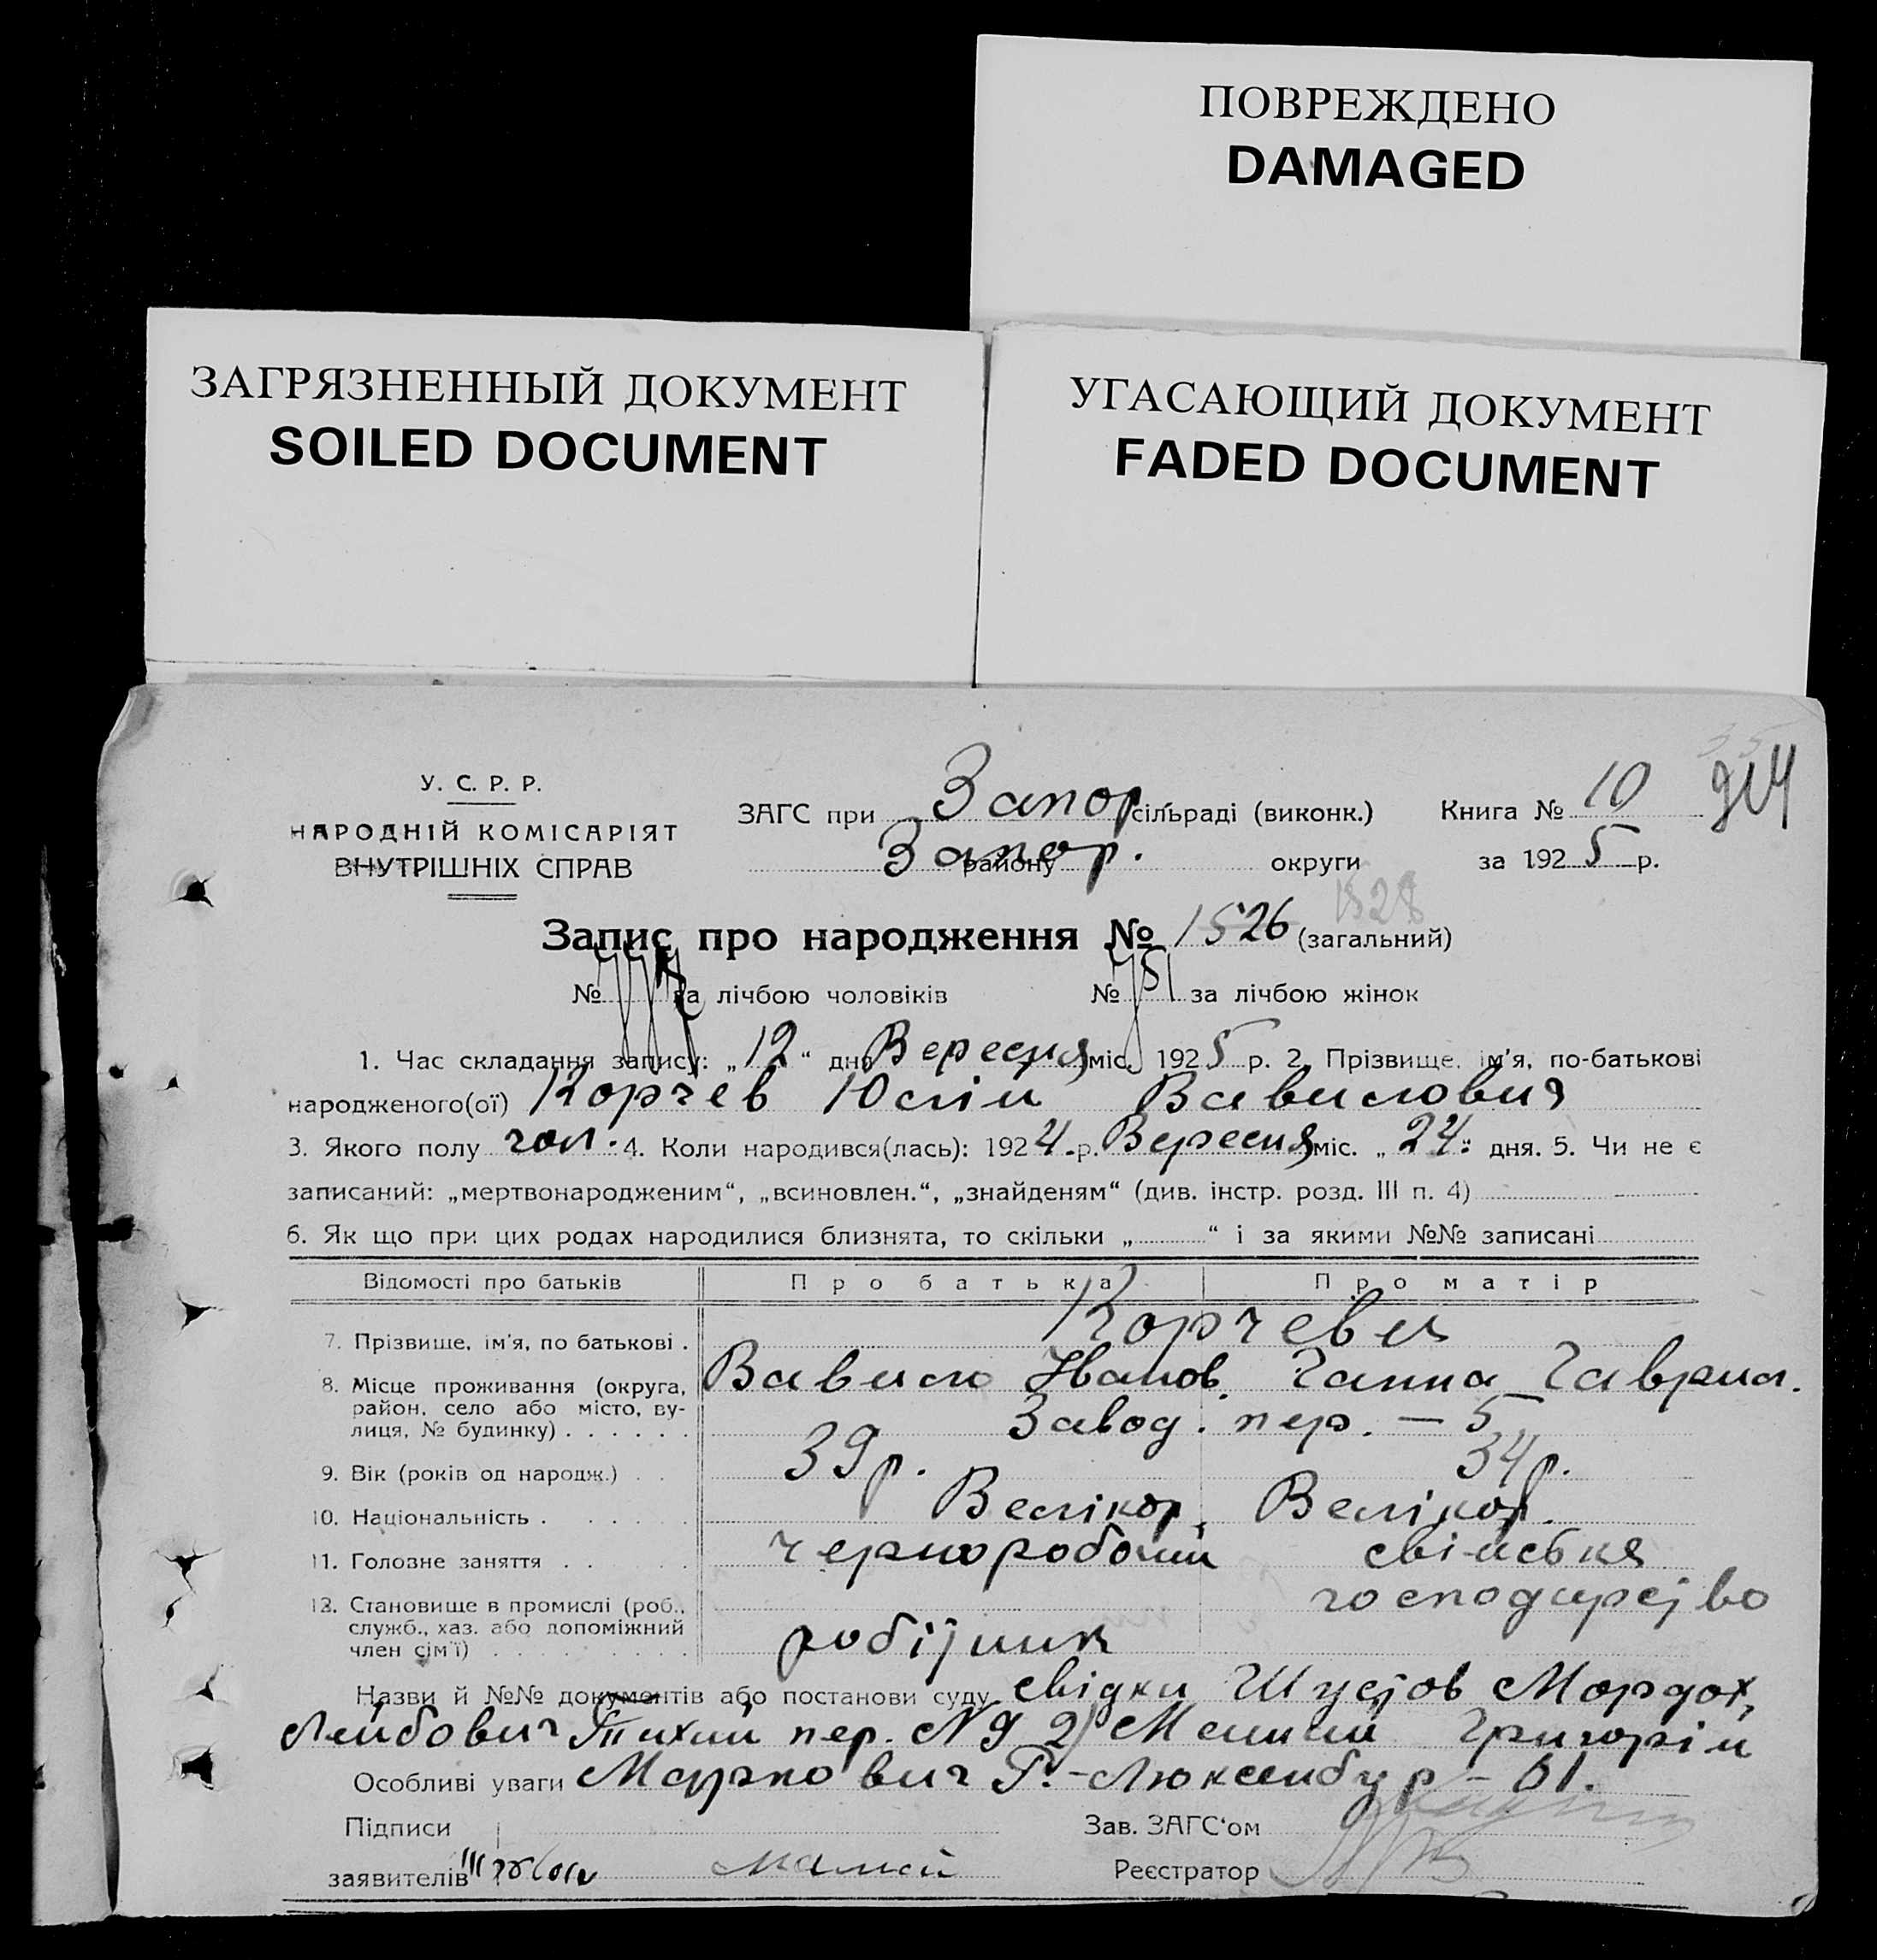 ПОВРЕЖДЕНО
DAMAGED
ЗАГРЯЗНЕННЫЙ ДОКУМЕНТ
SOILED DOCUMENT
УГАСАЮЩИЙ ДОКУМЕНТ
FADED DOCUMENT
У. С. Р. Р.
НАРОДНІЙ КОМІСАРІЯТ
ВНУТРІШНІХ СПРАВ
ЗАГС при Запор сільраді (виконк.) Книга № 10
Запор. району округи за 1925 р.
Запис про народження № 1526 (загальний) 1528
№ за лічбою чоловіків № 751 за лічбою жінок
1. Час складання запису: „12“ дня Вересня міс. 1925 р. 2. Прізвище, ім'я, по-батькові
народженого(ої) Корчев Юлій Вавилович
3. Якого полу чол. 4. Коли народився(лась): 1924 р. Вересня міс. „24“ дня. 5. Чи не є
записаний: „мертвонародженим“, „всиновлен.“, „знайденям“ (див. інстр. розд. III п. 4)
6. Як що при цих родах народилися близнята, то скільки „ “ і за якими №№ записані
Відомості про батьків Про батька Про матір
7. Прізвише, ім'я, по батькові . Корчеви
Вавило Іванов. Ганна Гаврил.
8. Місце проживання (округа,
район, село або місто, ву-
лиця, № будинку) . . . . . . Завод. пер. — 5
9. Вік (років од народж.) . . 39 р. 34 р.
10. Національність . . . . . . Велікор. Велікор.
11. Головне заняття . . . чорноробочий свійське
господарство
12. Становище в промислі (роб.,
служб., хаз. або допоміжний
член сім'ї) . . . . . . . . . робітник
Назви й №№ документів або постанови суду свідки Шустов Мордох,
Лейбович Тихий пер. N 9 2) Малий Григорій
Особливі уваги Маркович Р.-Люксембур - 61.
Підписи Зав. ЗАГС'ом
заявителів малий Реєстратор